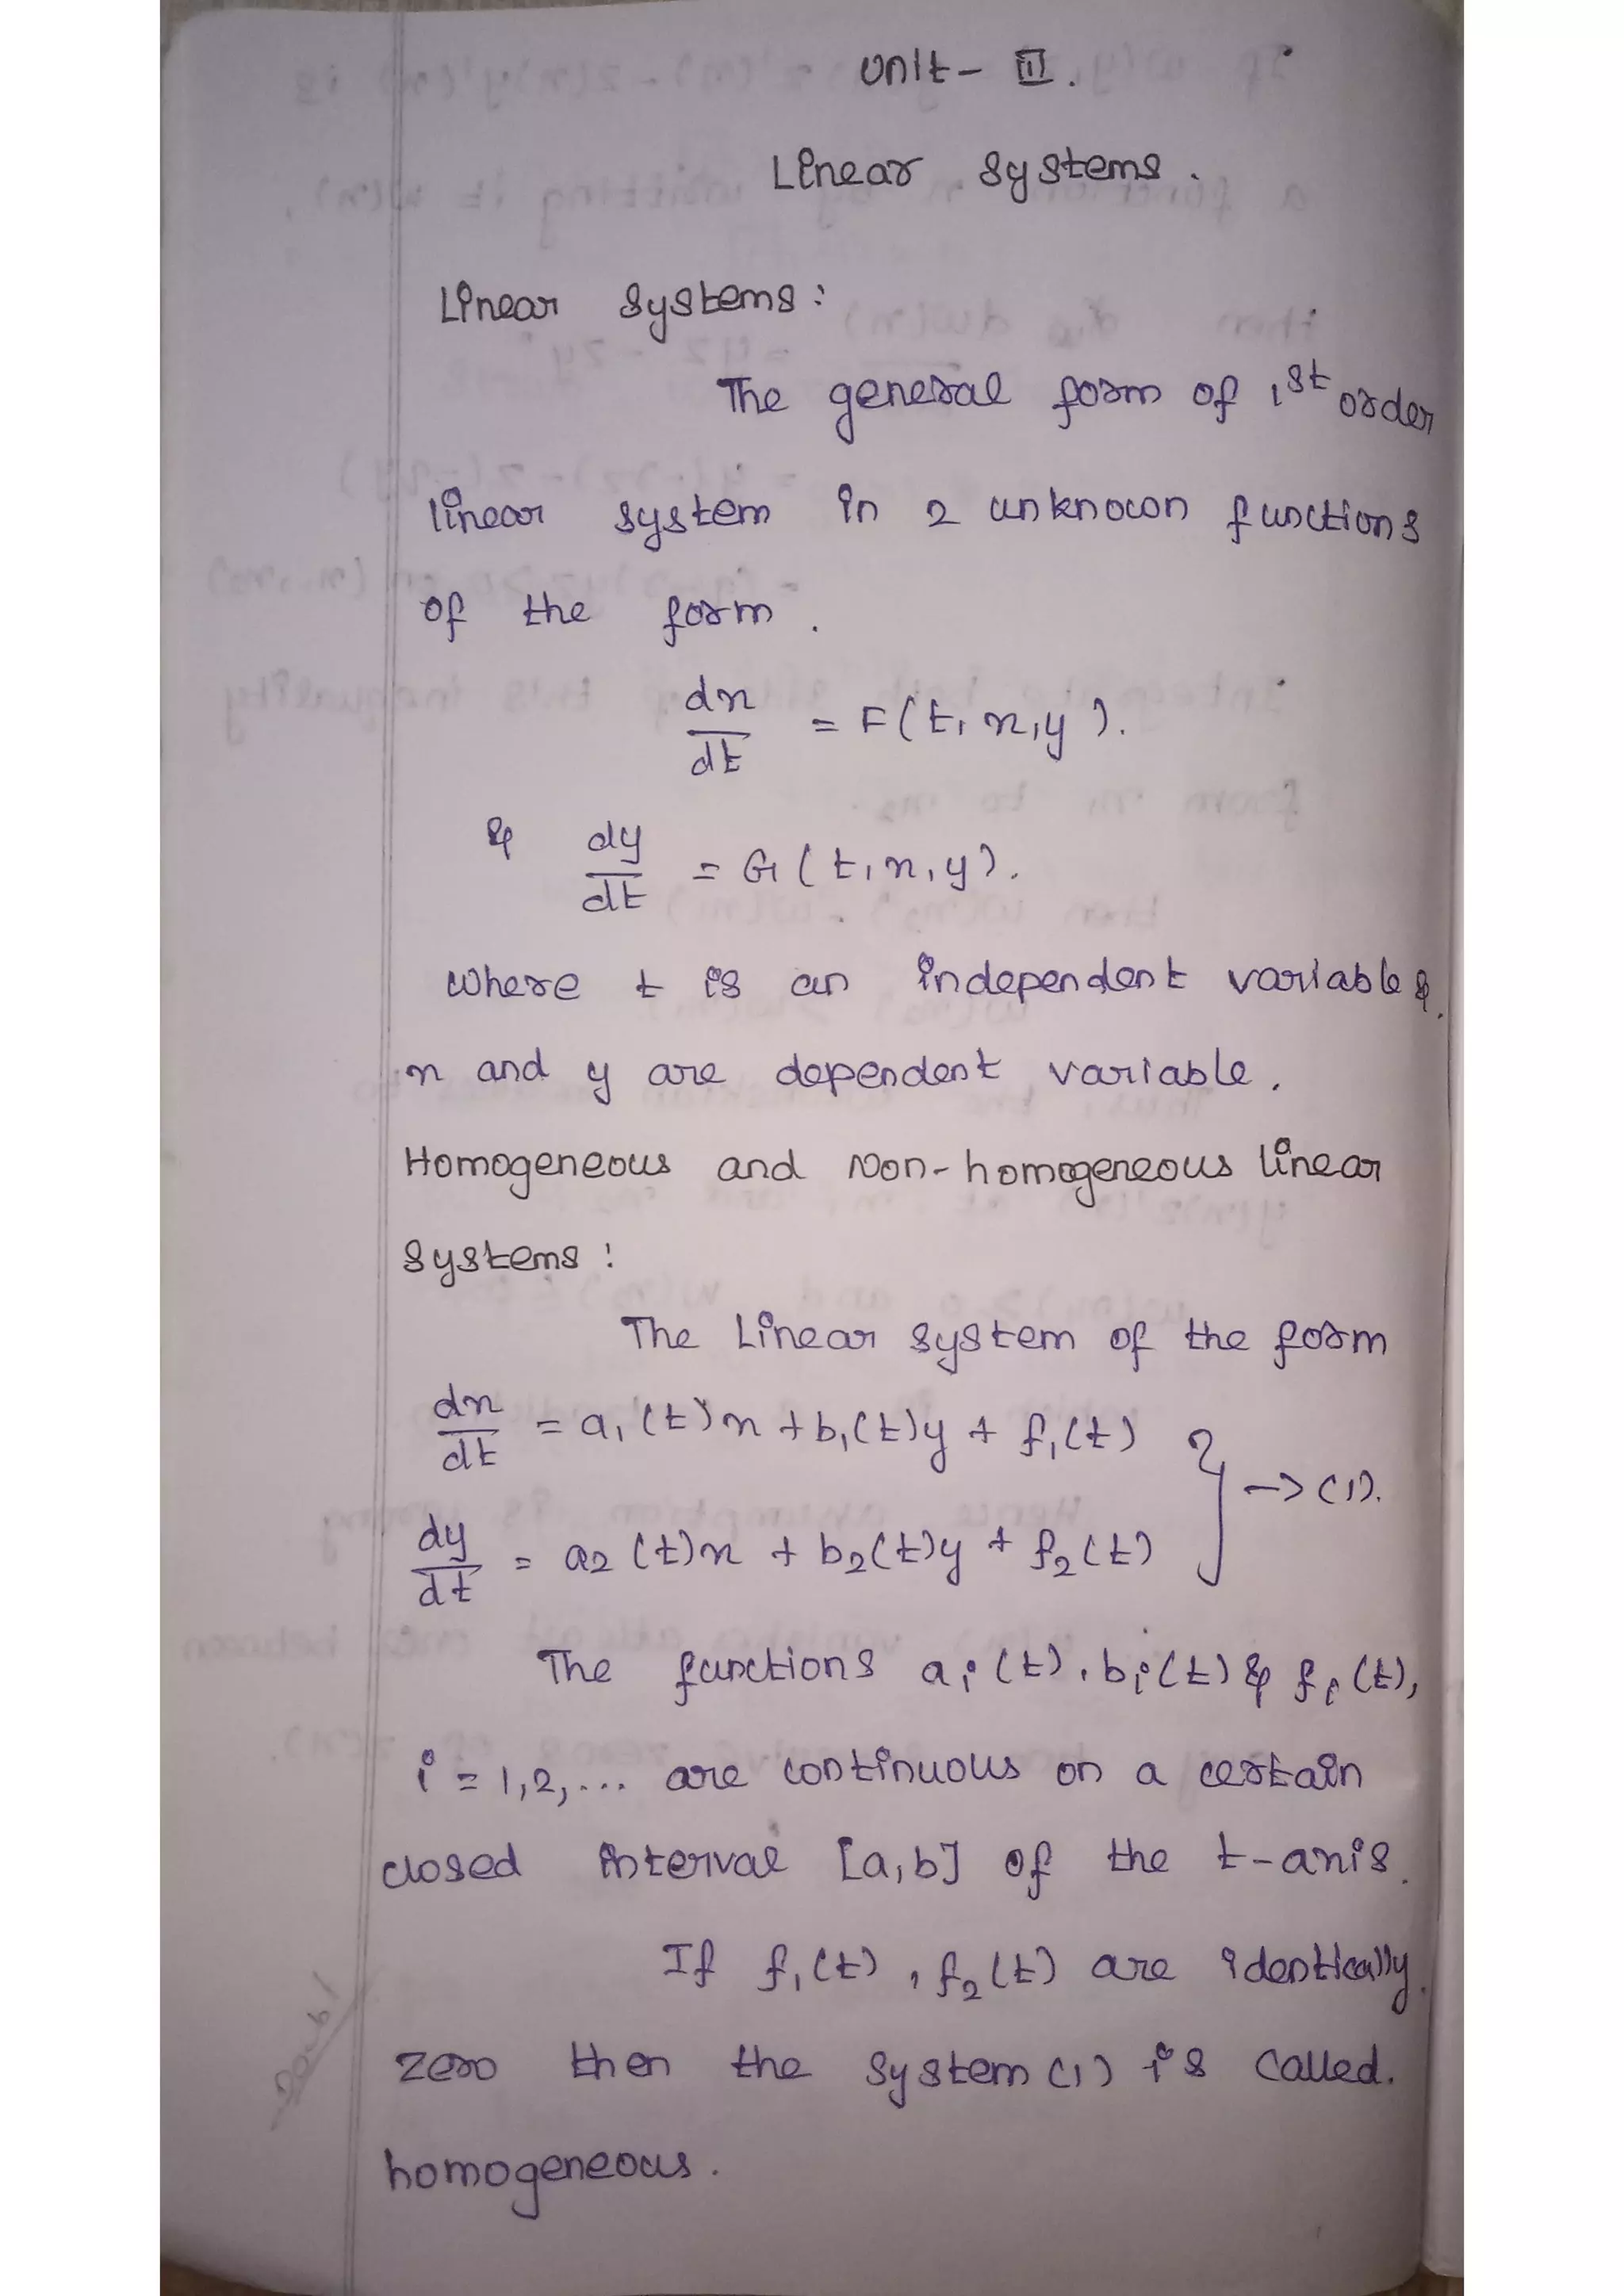 Unit - III.
Linear Systems.
Linear Systems:
The general form of 1st order
linear system in 2 unknown functions
of the form.
dx/dt = F(t, x, y).
& dy/dt = G(t, x, y).
where t is an independent variable &
x and y are dependent variable.
Homogeneous and Non-homogeneous linear
systems:
The Linear system of the form
dx/dt = a₁(t)x + b₁(t)y + f₁(t)
dy/dt = a₂(t)x + b₂(t)y + f₂(t) } → (1).
The functions aᵢ(t), bᵢ(t) & fᵢ(t),
i = 1,2,... are continuous on a certain
closed interval [a,b] of the t-axis.
If f₁(t), f₂(t) are identically
zero then the system (1) is called.
homogeneous.